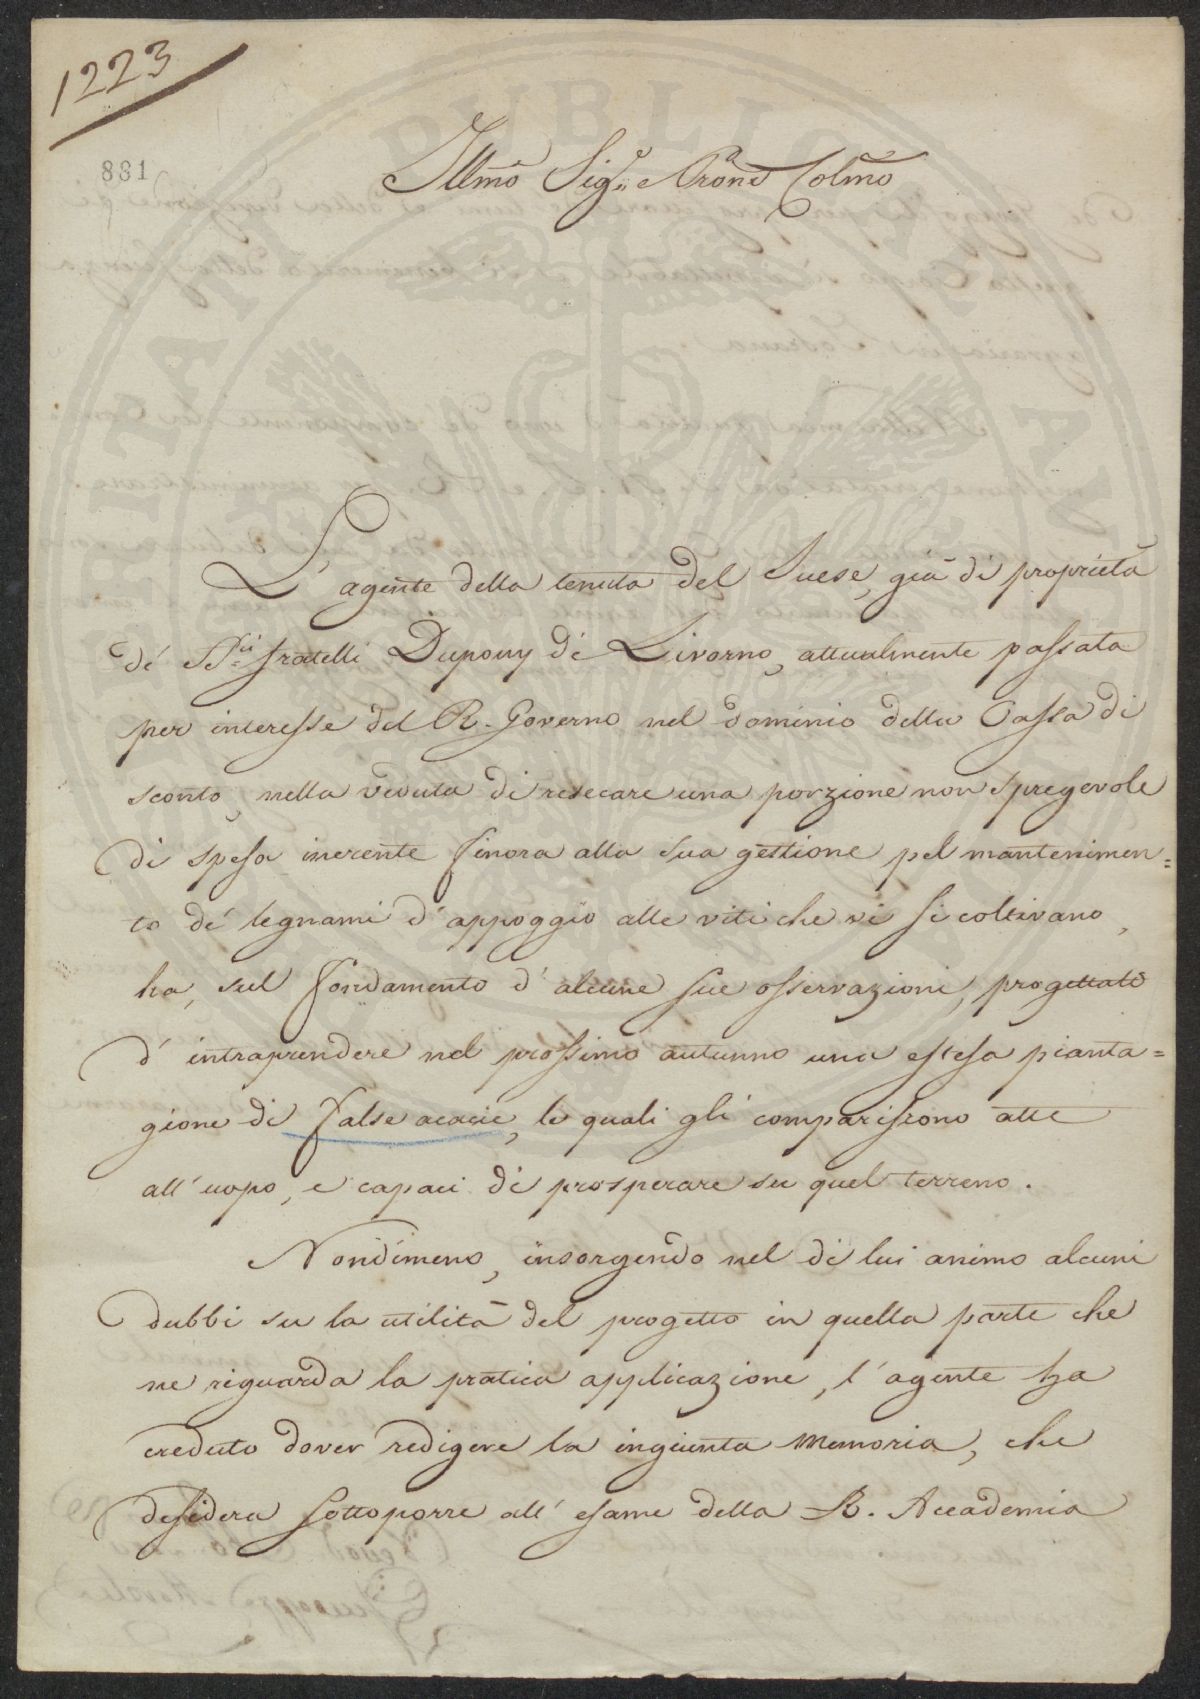 1223
881
Illmo Sig.re e Prone Colmo
L'agente della tenuta del Suese, già di proprietà
de' SS.ri fratelli Dupouy di Livorno, attualmente passata
per interesse del R. Governo nel dominio della Cassa di
sconto, nella veduta di resecare una porzione non spregevole
di spesa inerente finora alla sua gestione pel mantenimen=
to de' legnami d'appoggio alle viti che vi si coltivano,
ha, sul fondamento d'alcune sue osservazioni, progettato
d'intraprendere nel prossimo autunno una estesa pianta=
gione di false acacie, le quali gli compariscono atte
all'uopo, e capaci di prosperare su quel terreno.
Nondimeno, insorgendo nel di lui animo alcuni
dubbi su la utilità del progetto in quella parte che
ne riguarda la pratica applicazione, l'agente ha
creduto dover redigere la ingiunta memoria, che
desidera sottoporre all'esame della R. Accademia